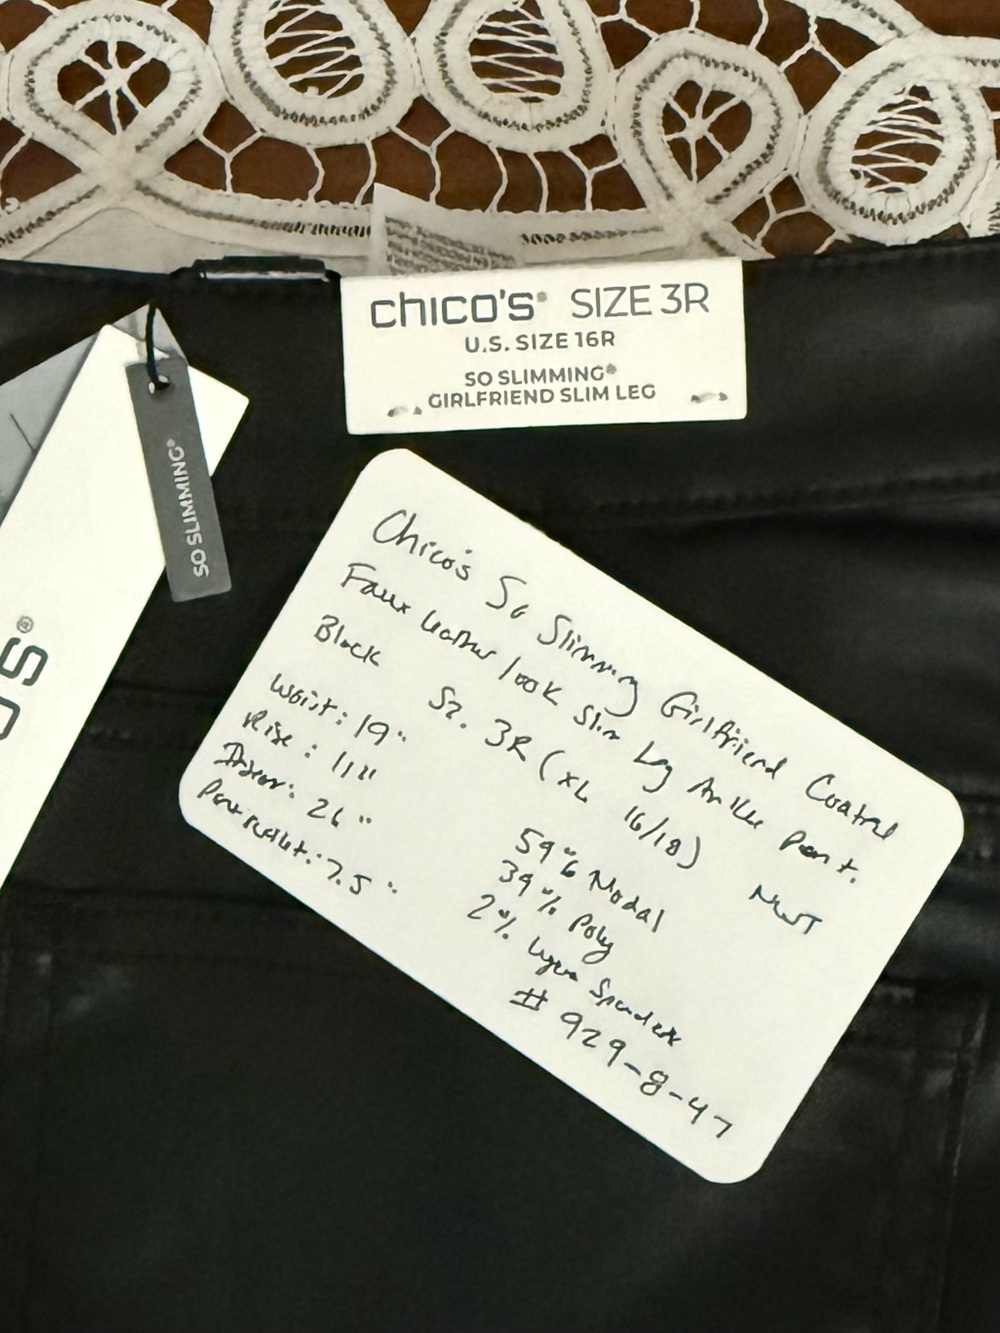 chico's® SIZE 3R
U.S. SIZE 16R
SO SLIMMING®
GIRLFRIEND SLIM LEG
SO SLIMMING®
O'S®
Chico's So Slimming Girlfriend Coated
Faux leather look Slim Leg Ankle Pant.
Black Sz. 3R (XL 16/18) NWT
Waist: 19"
Rise: 11"
Inseam: 26"
59% Modal
39% Poly
2% Lycra Spandex
# 929-8-47